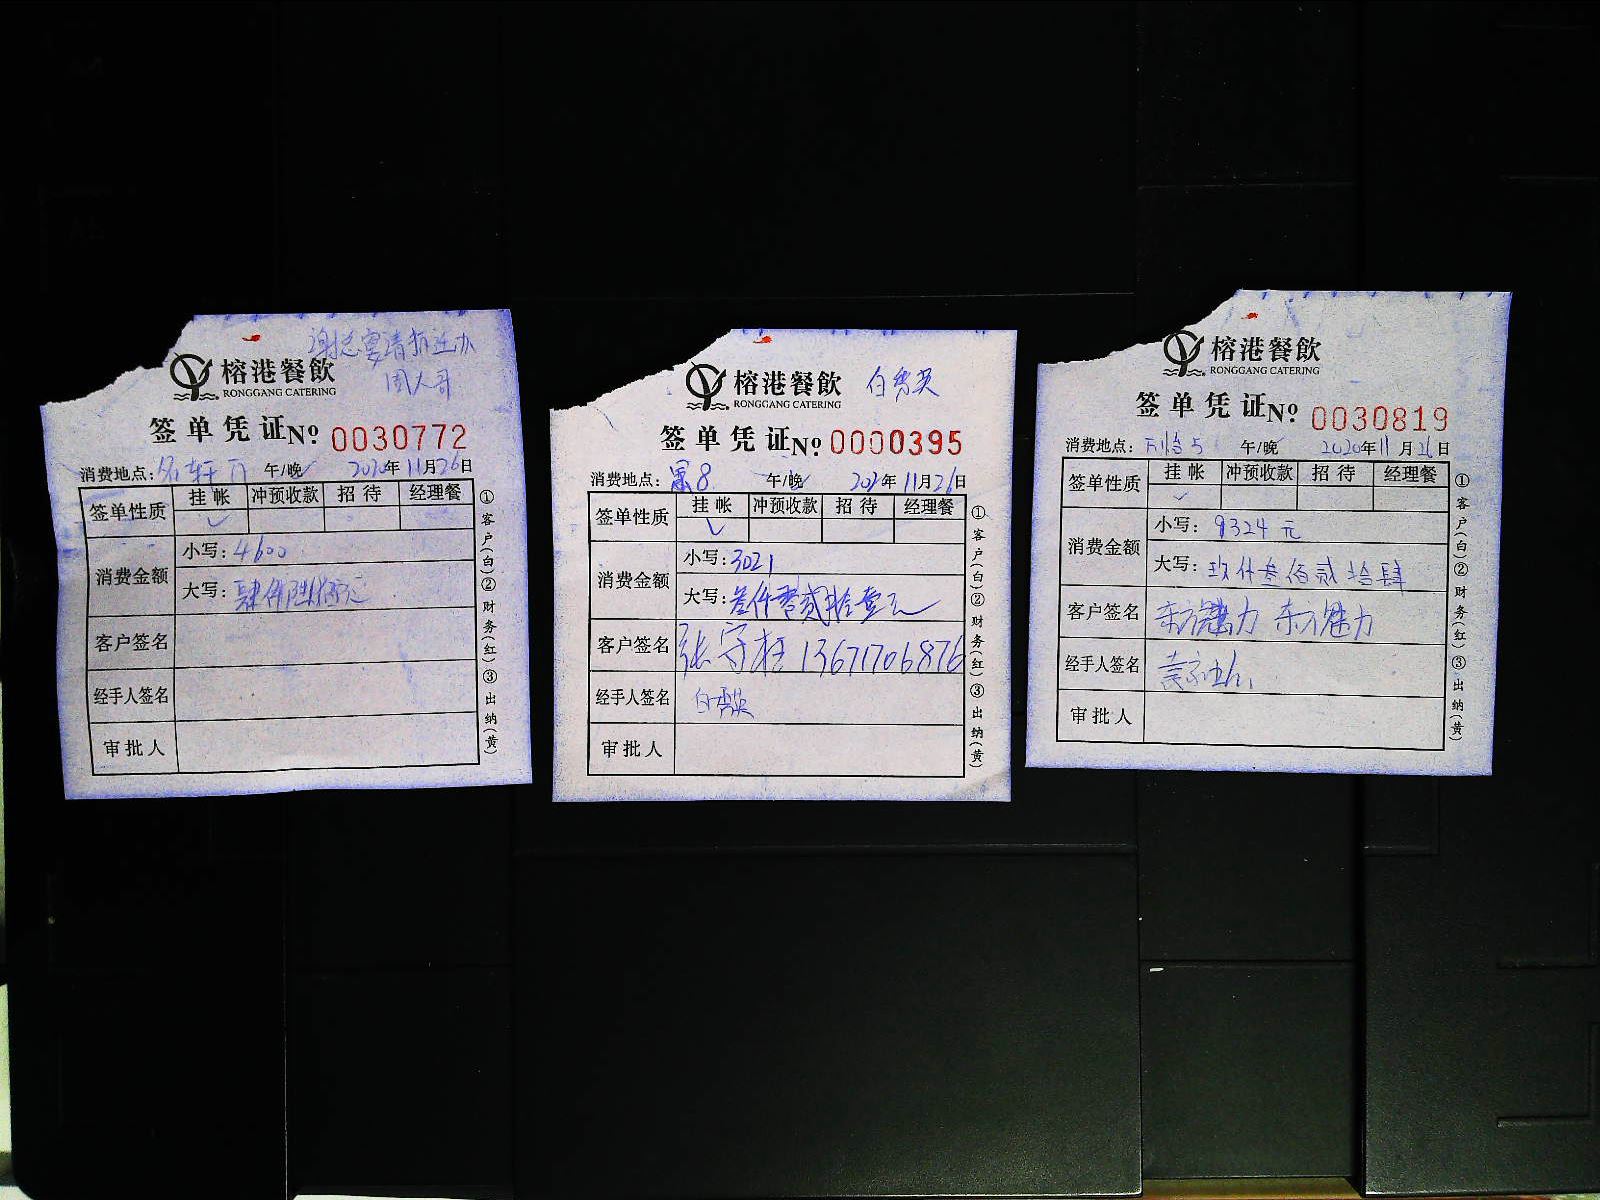 周大哥
榕港餐飲
RONGGANG CATERING
签单凭证 No 0030772
消费地点: 午/晚 2020年11月26日
签单性质 挂帐 冲预收款 招待 经理餐
✓
消费金额
小写: 4600
大写: 肆仟陆佰元
客户签名
经手人签名
审批人
①客户(白)②财务(红)③出纳(黄)
白秀英
榕港餐飲
RONGGANG CATERING
签单凭证 No 0000395
消费地点: 8 午/晚 2020年11月26日
签单性质 挂帐 冲预收款 招待 经理餐
✓
消费金额
小写: 3021
大写: 叁仟零贰拾壹元
客户签名 张守柱 13671706876
经手人签名 白秀英
审批人
①客户(白)②财务(红)③出纳(黄)
榕港餐飲
RONGGANG CATERING
签单凭证 No 0030819
消费地点: 5 午/晚 2020年11月26日
签单性质 挂帐 冲预收款 招待 经理餐
✓
消费金额
小写: 9324元
大写: 玖仟叁佰贰拾肆
客户签名 东方魅力 东方魅力
经手人签名
审批人
①客户(白)②财务(红)③出纳(黄)